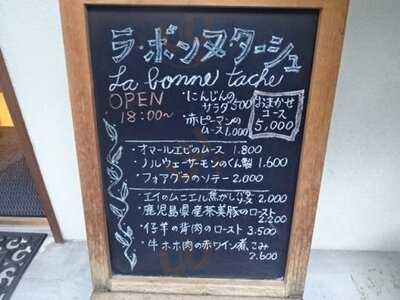 ラ・ボンヌ・ターシュ
La bonne tache
OPEN
18:00~
・にんじんの
サラダ 500
・赤ピーマンの
ムース 1,000
おまかせ
コース
5,000
・オマールエビのムース 1.800
・ノルウェーサーモンのくん製 1.600
・フォアグラのソテー 2.000
・エイのムニエル焦がしバターソース 2.000
・鹿児島県産茶美豚のロースト
2.200
・仔羊の背肉のロースト 3.500
・牛ホホ肉の赤ワイン煮こみ
2.600